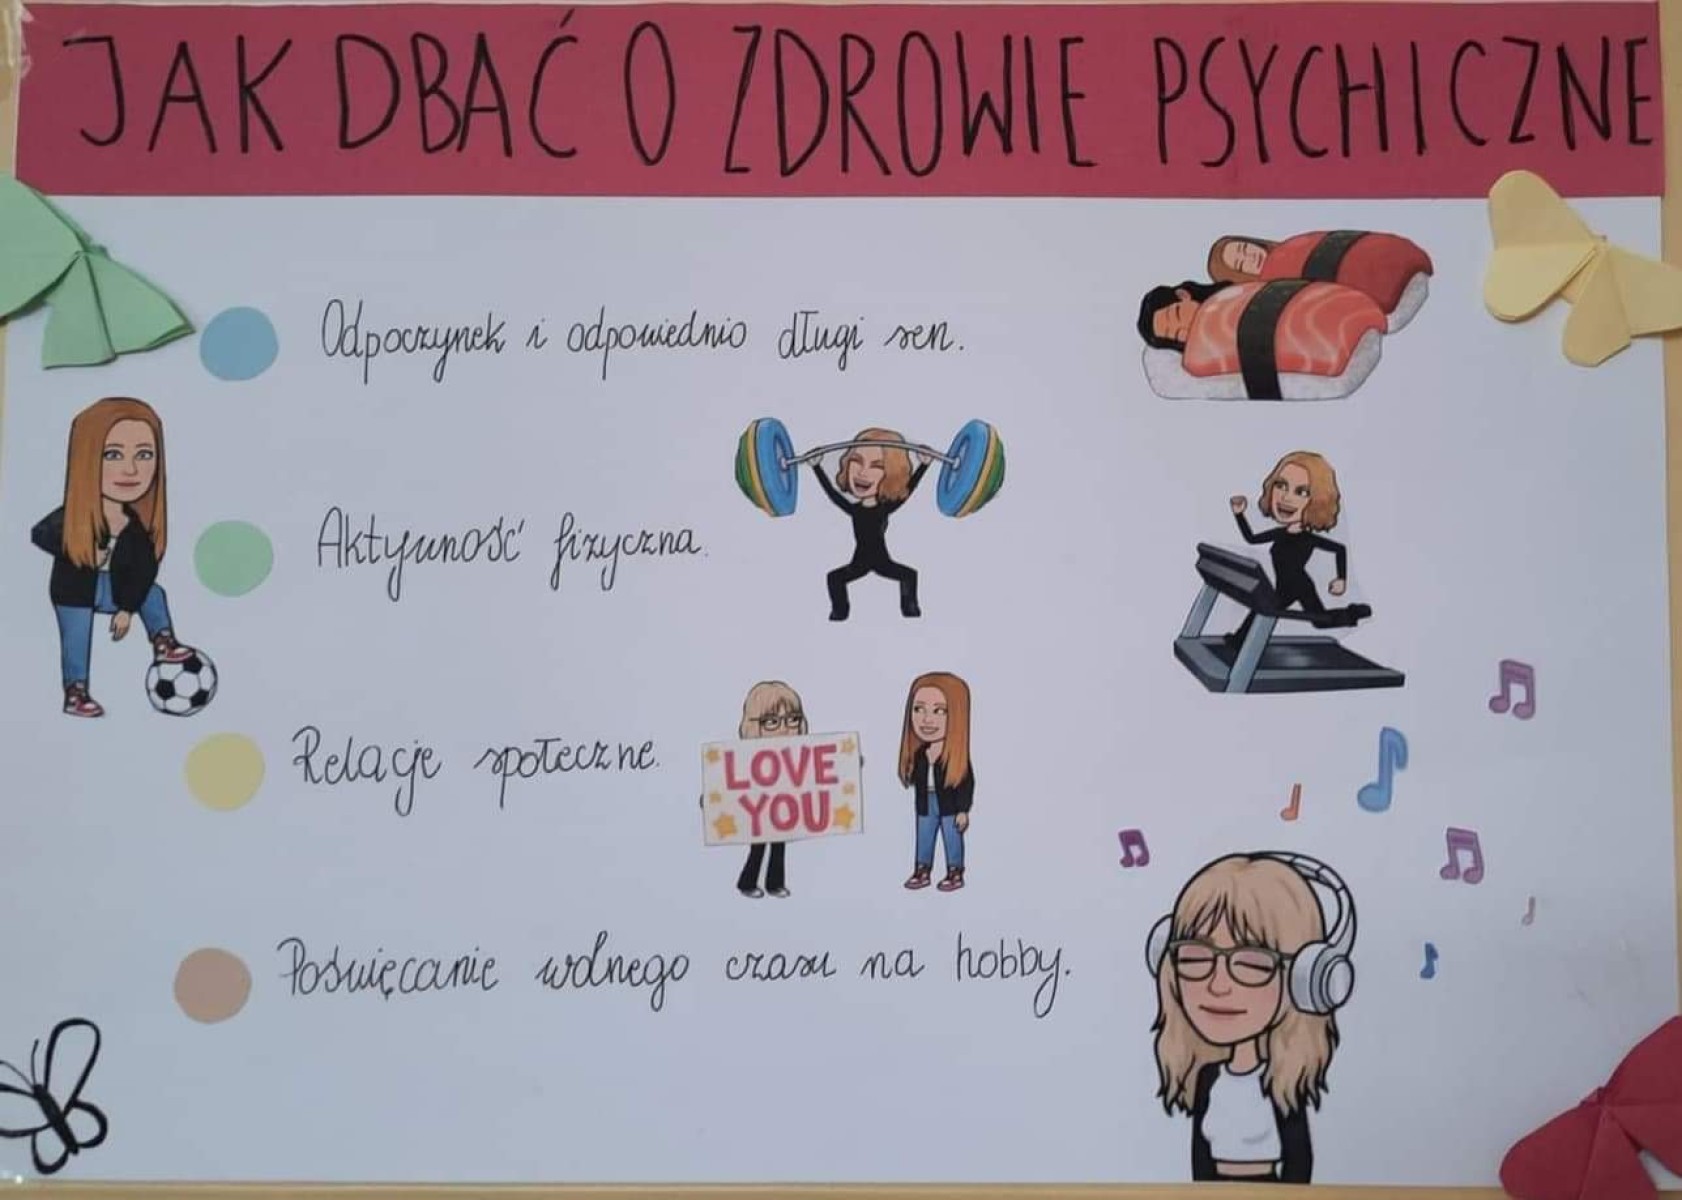 JAK DBAĆ O ZDROWIE PSYCHICZNE
Odpoczynek i odpowiednio długi sen.
Aktywność fizyczna.
Relacje społeczne.
LOVE
YOU
Poświęcanie wolnego czasu na hobby.